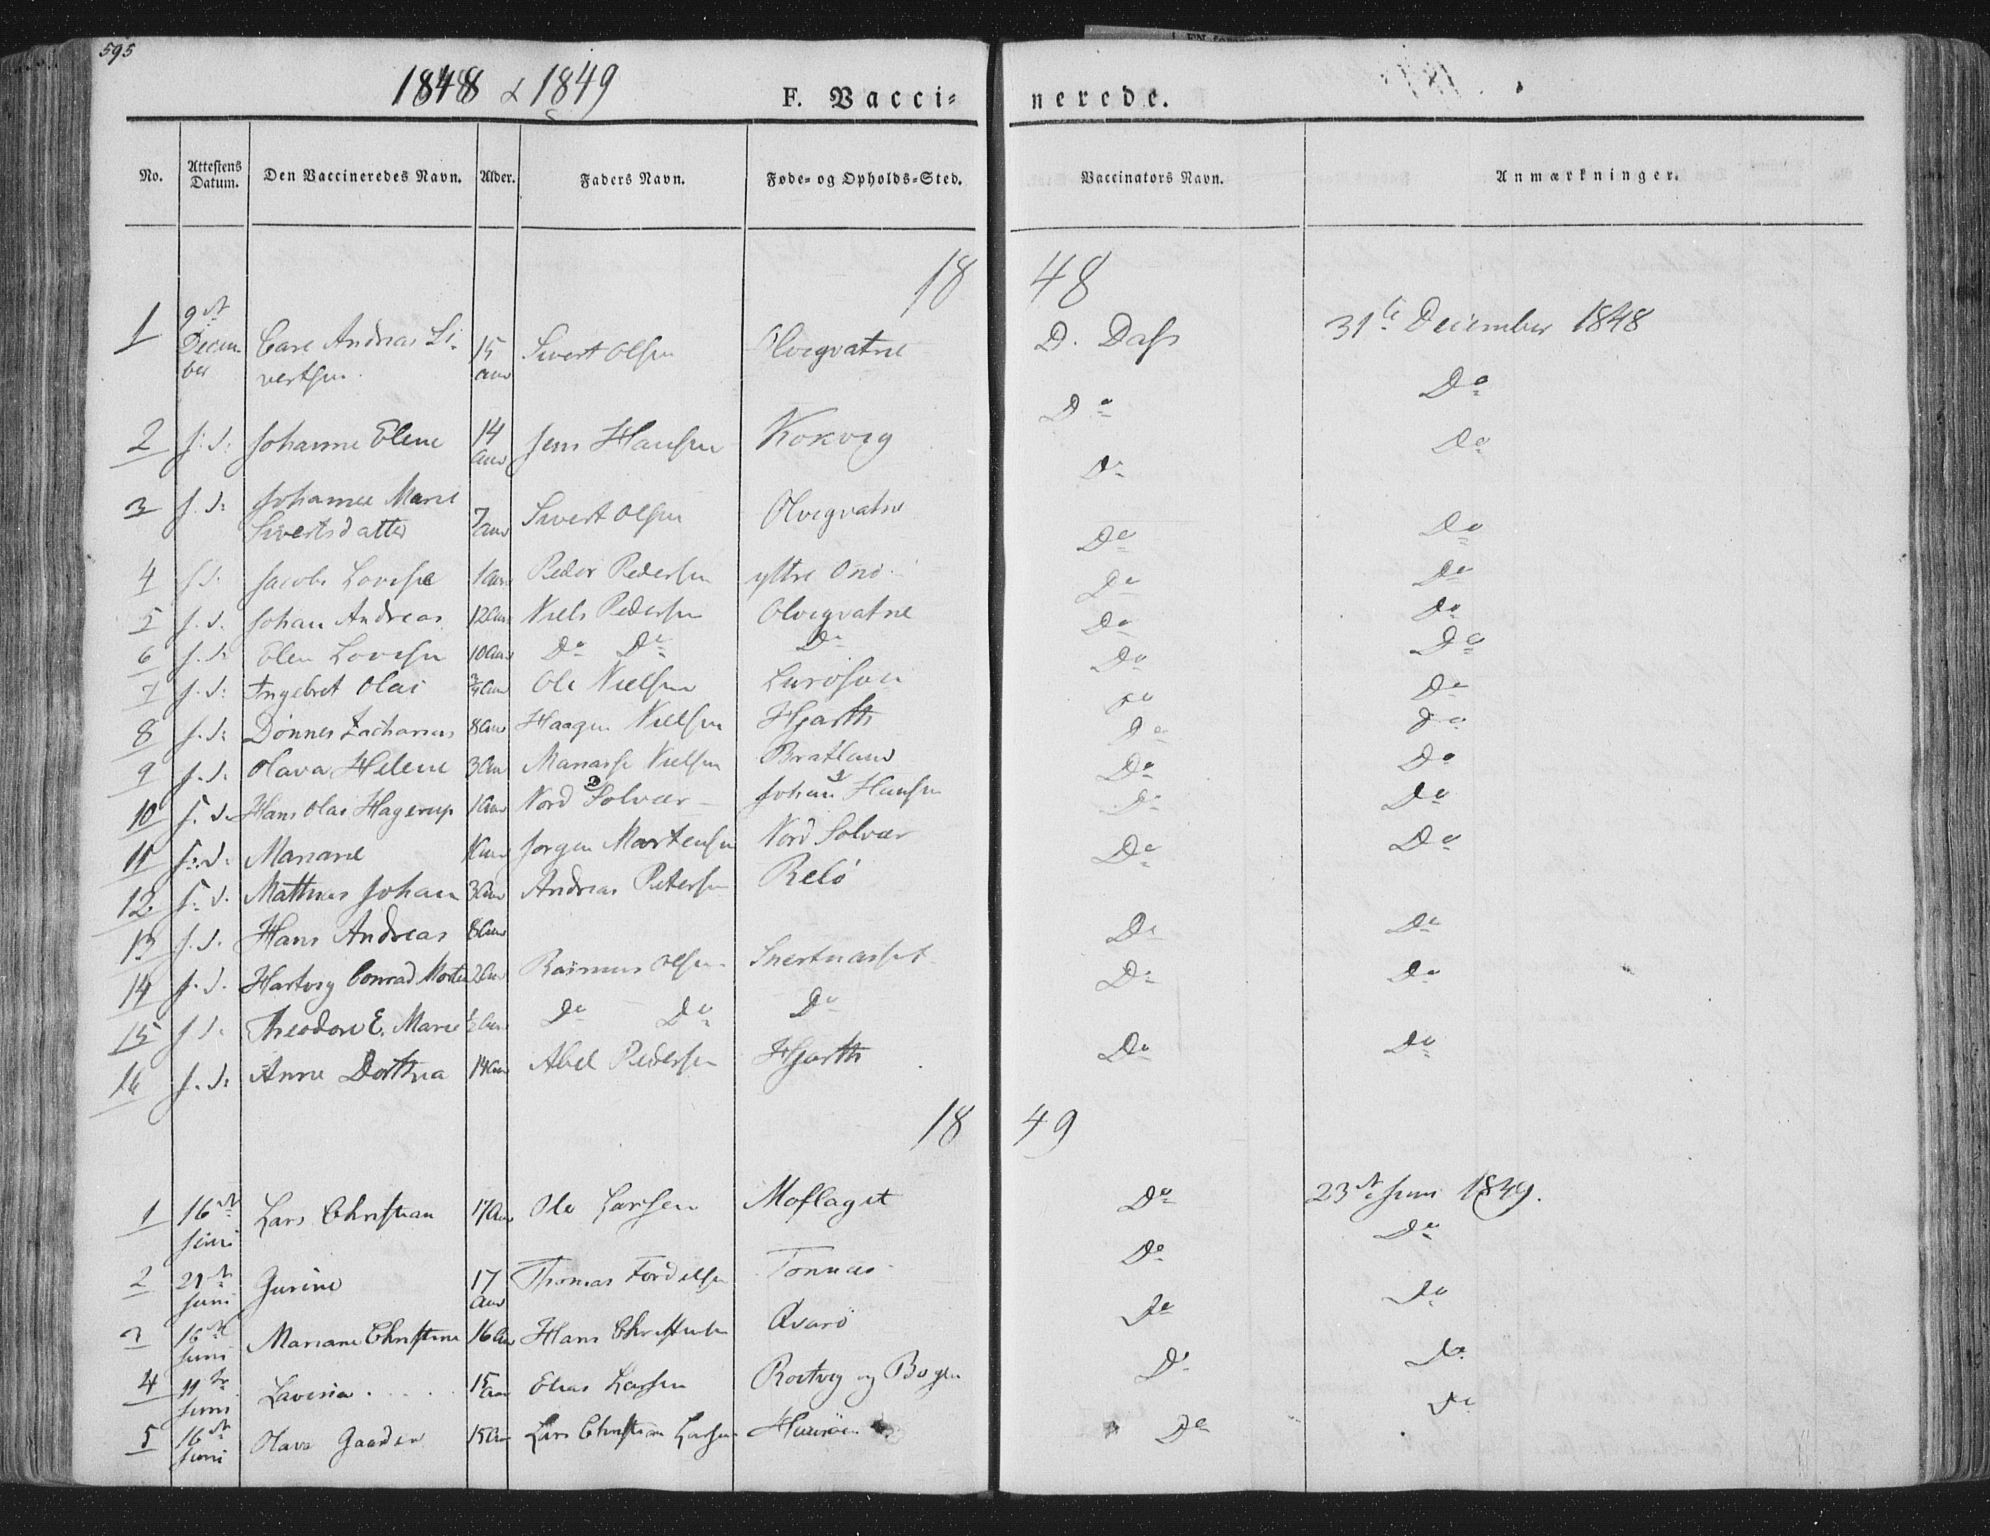 595
1848 & 1849
F. Vacci- nerede.
No. Attestens Datum. Den Vaccineredes Navn. Alder. Faders Navn. Føde- og Opholds-Sted. Vaccinators Navn. Anmærkninger.
18 48
1 9de Decem- Carl Andreas Si- 15 Sivert Olsen Olvigvatne D. Dass 31te December 1848
ber vertsen. aar
2 s. d. Johanne Elene 14 aar Jens Hansen Kokvig Do Do
3 s. d. Johanne Marie Do Do
Sivertsdatter 7 aar Sivert Olsen Olvigvatne
4 s. d. Jacob Lovise 1 aar Peder Pedersen yttre Onö Do Do
5 s. d. Johan Andreas 12 aar Niels Pedersen Olvigvatne Do Do
6 s. d. Elen Lovise 10 aar Do Do Do Do Do
7 s. d. Ingebret Olai 3/4 aar Ole Nielsen Do Do
8 s. d. Dönnes Zacharias 8 aar Haagen Nielsen Hjarth Do Do
9 s. d. Olava Helene 3 aar Manasse Nielsen Bratland Do Do
10 s. d. Hans Olai Hagerup 1 aar Nord Solvær Johan Hansen Do Do
11 s. d. Mariane aar Jørgen Mortensen Nord Solvær Do Do
12 s. d. Mathias Johan 3 aar Andreas Petersen Relö Do Do
13 s. d. Hans Andreas 8 aar
14 s. d. Hartvig Conrad Morten 2 aar Rasmus Olsen Do Do
15 s. d. Theodore E. Marie 1/2 aar Do Do Do Do Do
16 s. d. Anne Dorthea 14 aar Abel Pedersen Hjarth Do Do
18 49
1 16de Juni Lars Christian 17 aar Ole Larsen Moflaget Do 23de Juni 1849.
2 21de Juni Gurine 17 aar Thomas Tonnes Do Do
3 16de Juni Mariane Christine 16 aar Hans Christensen Qvarö Do Do
4 11te Juni Lavina .... 15 aar Elias Larsen og Bogen Do Do
5 16de Juni Olava 15 aar Lars Christian Larsen Do Do